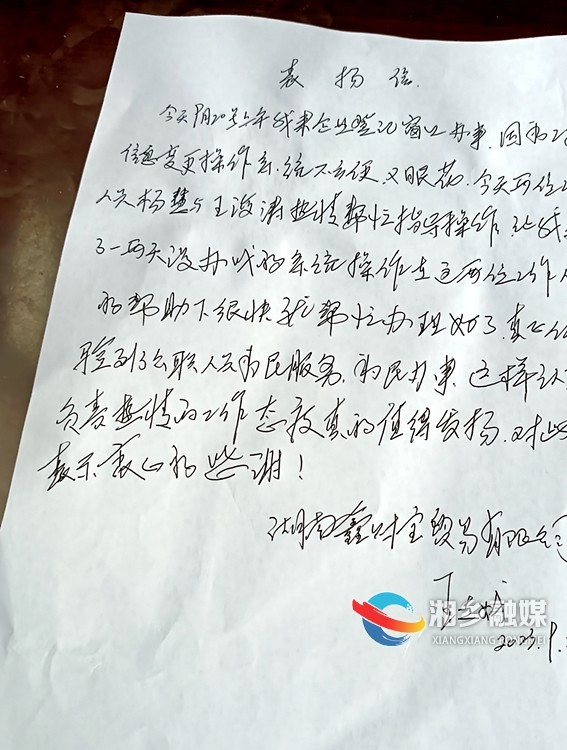 表扬信
今天9月20号上午我来企业登记窗口办事,因为
信息变更操作系统不方便,又眼花,今天两位
人员杨慧与王海涛热情帮忙指导操作,让我
了一两天没办成的系统操作在这两位工作人
的帮助下很快就帮忙办理好了,真正
驻到了公职人员为民服务,为民办事,这样认
负责热情的工作态度真的值得发扬,对此
表示衷心的感谢!
湖南鑫财宝贸易有限公司
湘乡融媒
XIANGXIANG
2023.9.